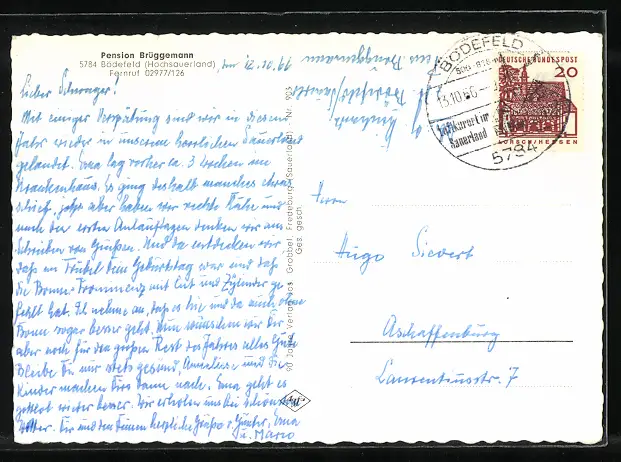 Pension Brüggemann
5784 Bödefeld (Hochsauerland)
Fernruf 02977/126
den 12.10.66
Lieber Schwager!
Mit einiger Verspätung sind wir in diesem
Jahr wieder in unserem herrlichen Sauerland
gelandet. Erna lag vorher ca. 3 Wochen im
Krankenhaus. Es ging deshalb manches etwas
schief, jetzt aber haben wir rechte Ruhe und
nach den ersten Anlauftagen denken wir ans
Schreiben von Grüßen. Und da entdecken wir
daß im Trubel Dein Geburtstag war und daß
die Bonner Prominenz mit Cut und Zylinder ge-
fehlt hat. Ich nehme an, daß es hie und da auch ohne
Bonn sogar besser geht. Nun wünschen wir Dir
aber noch für den großen Rest des Jahres alles Gute
Bleibe Du uns stets gesund, Anneliese und die
Kinder machen Dir dann noch. Erna geht es
gottlob wieder besser. Wir erholen uns bei schönem
Wetter. Dir und den Deinen herzliche Grüße v. Günter, Erna
u. Mario
90 Jahre Verlag Jos. Grobbel, Fredeburg (Sauerland) Nr. 903
Ges. gesch.
BÖDEFELD
13.10.66
Luftkurort im
Sauerland
5784
DEUTSCHE BUNDESPOST
20
LORSCH/HESSEN
Herrn
Hugo Sievert
Aschaffenburg
Laurentiusstr. 7